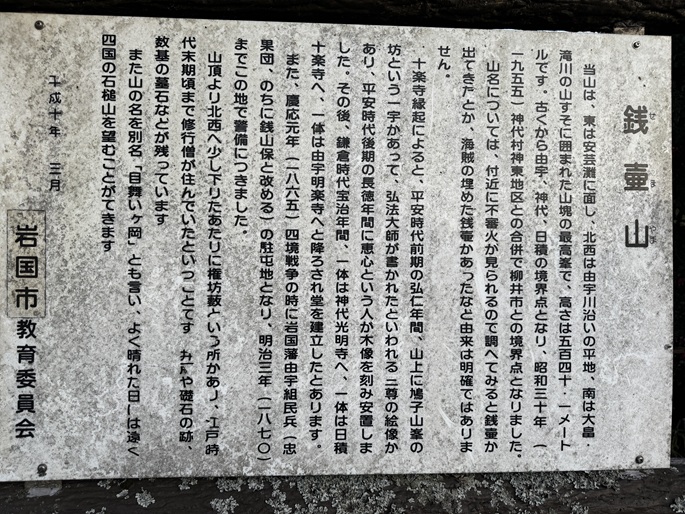 銭壷山
せ ま やま
当山は、東は安芸灘に面し、北西は由宇川沿いの平地、南は大畠・
滝川の山すそに囲まれた山塊の最高峯で、高さは五百四十・一メート
ルです。古くから由宇、神代、日積の境界点となり、昭和三十年（
一九五五）神代村神東地区との合併で柳井市との境界点となりました。
山名については、付近に不審火が見られるので調べてみると銭壷が
出てきたとか、海賊の埋めた銭壷があったなど由来は明確ではありま
せん。
十楽寺縁起によると、平安時代前期の弘仁年間、山上に鳩子山峯の
坊という一宇があって、弘法大師が書かれたといわれる三尊の絵像が
あり、平安時代後期の長徳年間に恵心という人が木像を刻み安置しま
した。その後、鎌倉時代宝治年間、一体は神代光明寺へ、一体は日積
十楽寺へ、一体は由宇明楽寺へと降ろされ堂を建立したとあります。
また、慶応元年（一八六五）四境戦争の時に岩国藩由宇組民兵（忠
果団、のちに銭山保と改める）の駐屯地となり、明治三年（一八七〇）
までこの地で警備につきました。
山頂より北西へ少し下りたあたりに権坊藪という所があり、江戸時
代末期頃まで修行僧が住んでいたということです 井戸や礎石の跡、
数基の墓石などが残っています
また山の名を別名「目舞いヶ岡」とも言い、よく晴れた日には遠く
四国の石槌山を望むことができます
平成十年 三月
岩国市教育委員会